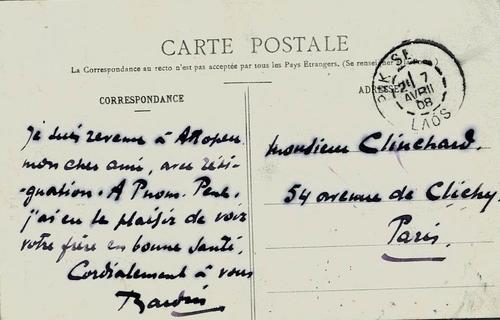 CARTE POSTALE
La Correspondance au recto n'est pas acceptée par tous les Pays Etrangers. (Se renseigner
CORRESPONDANCE
Je suis revenu à
mon cher ami, avec rési-
gnation. A Pnom. Penh,
j'ai eu le plaisir de voir
votre frère en bonne santé.
Cordialement à vous
ADRESSE
PAKSE
7
AVRIL
08
LAOS
Monsieur Clinchard.
54 avenue de Clichy.
Paris.